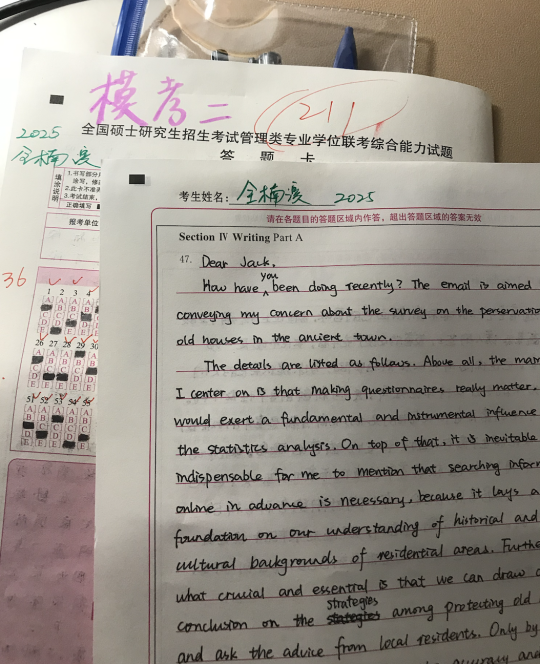 模考二
211
2025
全国硕士研究生招生考试管理类专业学位联考综合能力试题
答 题 卡
全楠溪
填涂说明
正确填涂
报考单位
36
1 2 3 4
26 27 28 29 30
51 52 53 54 55
考生姓名：全楠溪 2025
请在各题目的答题区域内作答，超出答题区域的答案无效
Section Ⅳ Writing Part A
47. Dear Jack,
How have you been doing recently? The email is aimed
conveying my concern about the survey on the perservation
old houses in the ancient town.
The details are listed as follows. Above all, the main
I center on is that making questionnaires really matter,
would exert a fundamental and instrumental influence
the statistics analysis. On top of that, it is inevitable
indispensable for me to mention that searching infor
online in advance is necessary, because it lays a
foundation on our understanding of historical and
cultural backgrounds of residential areas. Furthe
what crucial and essential is that we can draw
conclusion on the strategies among protecting old
and ask the advice from local residents. Only by
accuracy and